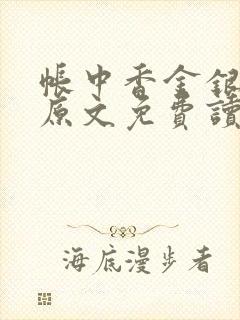 帳中香金銀
原文免費讀
海底漫步者